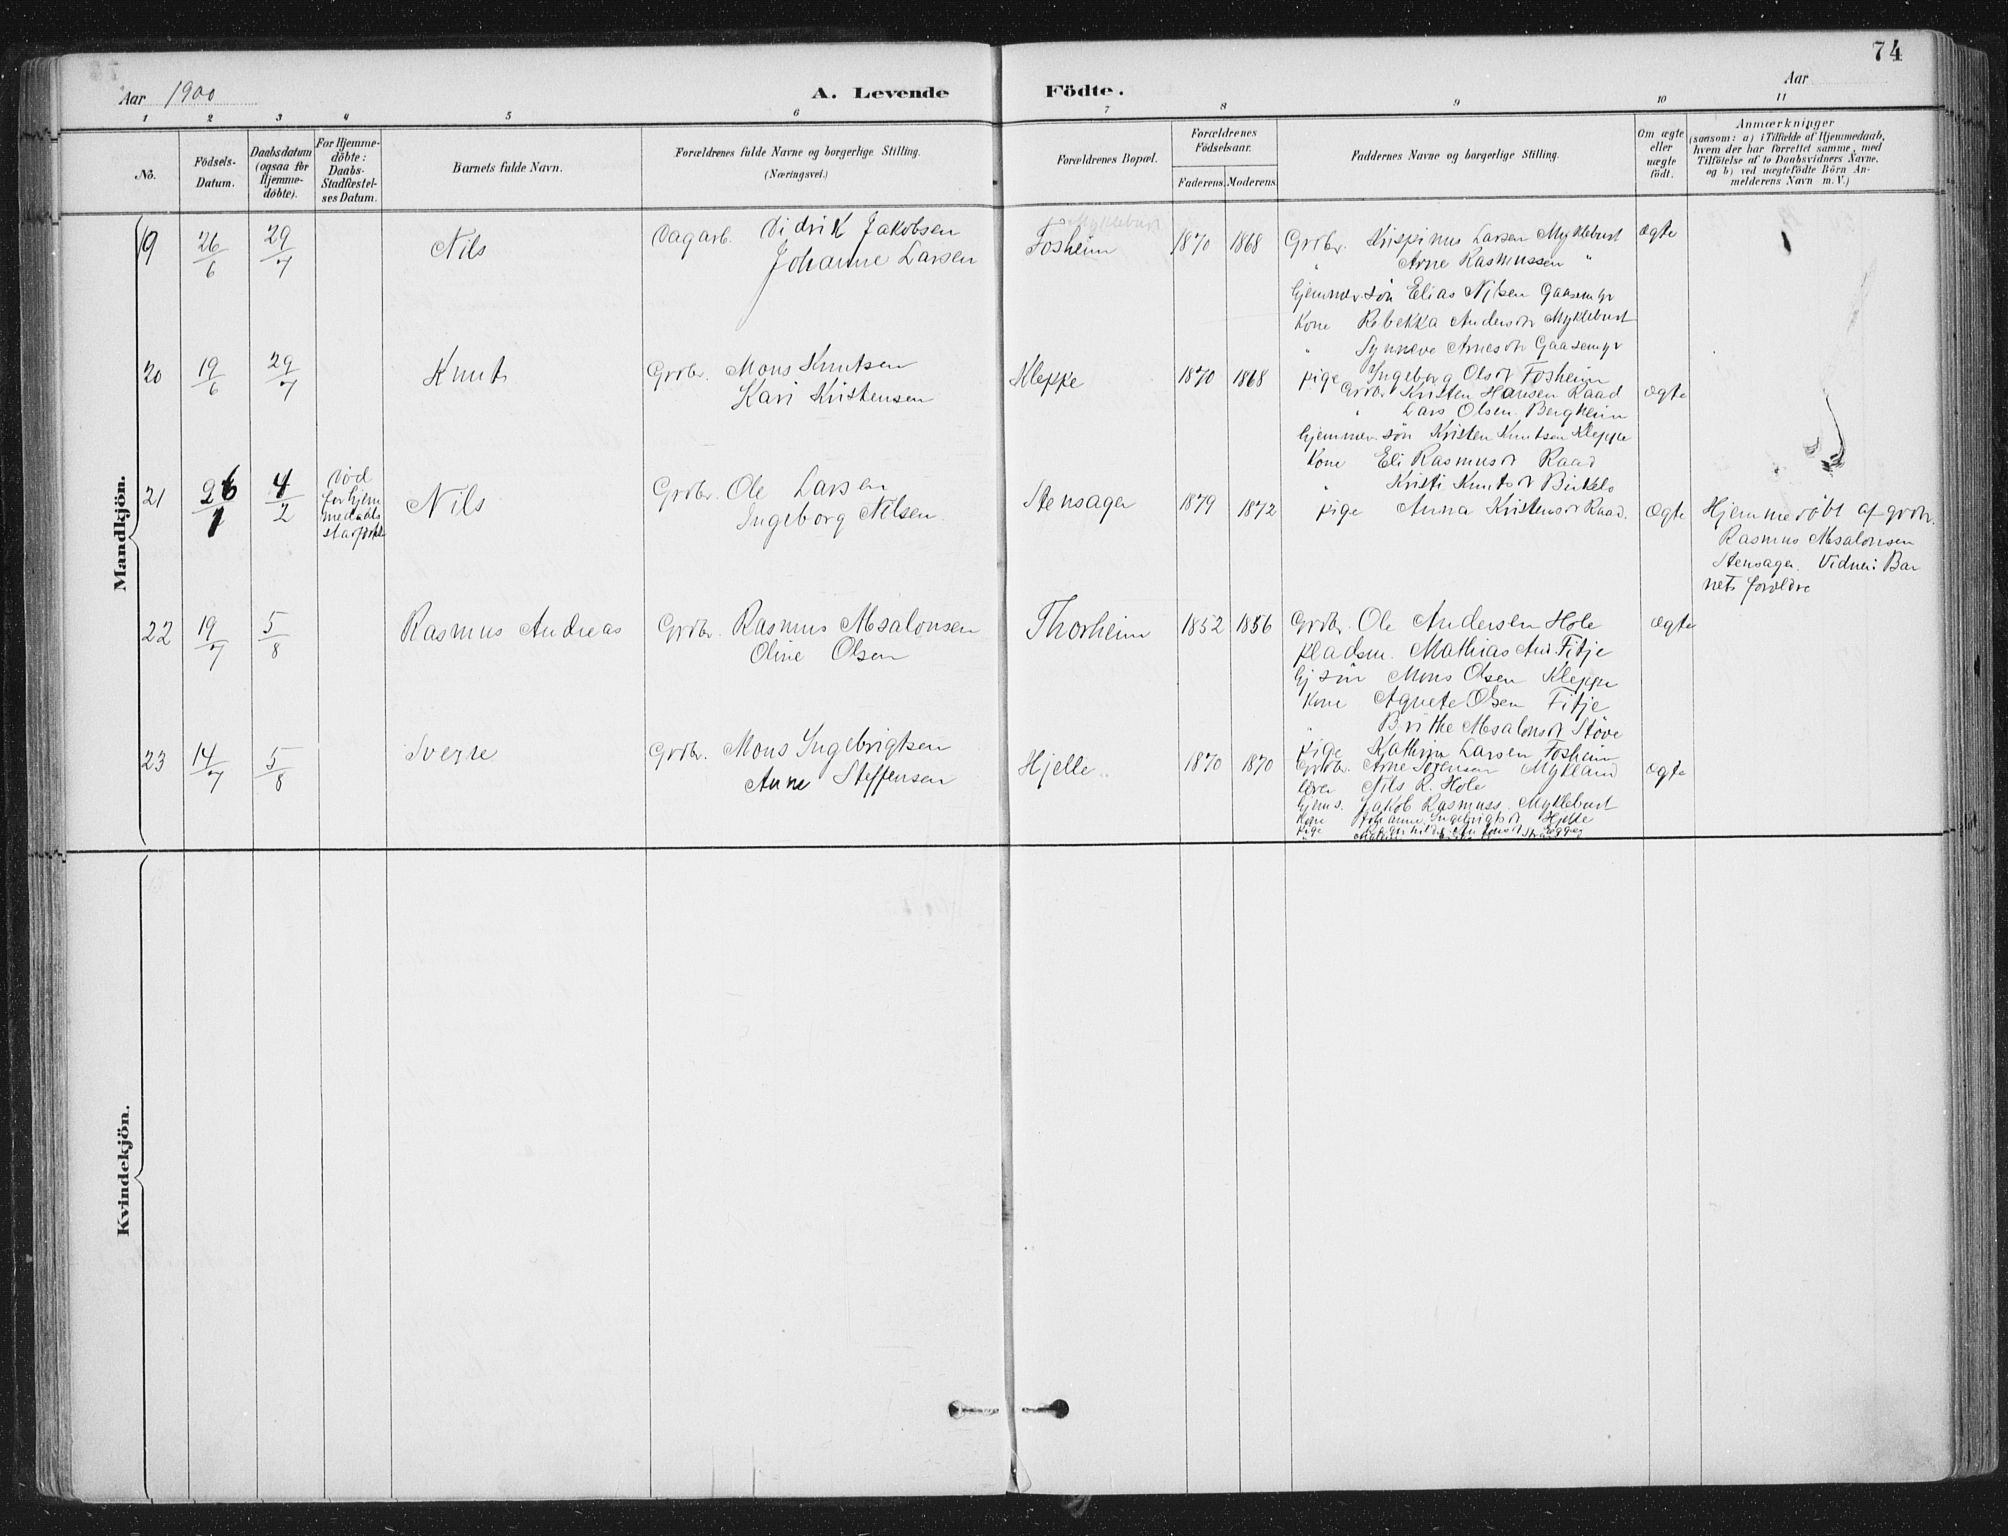 74
Aar 1900
A. Levende Födte.
Aar
1 2 3 4 5 6 7 8 9 10 11
No.
Födsels-Datum.
Daabsdatum (ogsaa for Hjemme-döbte).
For Hjemme-döbte: Daabs-Stadfæstel-ses Datum.
Barnets fulde Navn.
Forældrenes fulde Navne og borgerlige Stilling.
(Næringsvei.)
Forældrenes Bopæl.
Forældrenes Födselsaar.
Faderens. Moderens.
Faddernes Navne og borgerlige Stilling.
Om ægte eller uægte födt.
Anmærkninger
(saasom: a) i Tilfælde af Hjemmedaab,
hvem der har forrettet samme, med
Tilföielse af to Daabsvidners Navne,
og b) ved uægtefödte Börn An-
melderens Navn m. V.)
Mandkjön.
19 26/6 29/7 Nils Dagarb. Didrik Jakobsen
Johanne Larsen
Myklebust
Fosheim 1870 1868
Grdbr. Krispinus Larsen Myklebust ægte
" Arne Rasmussen "
hjemmev. søn Elias Nilsen Gaasemyr
Kone Rebekka Andersdr Myklebust
" Synneve Arnesdr Gaasemyr
pige Ingeborg Olsdr Fosheim
20 19/6 29/7 Knut Grdbr. Mons Knutsen
Kari Kristensen
Kleppe 1870 1868
Grdbr. Kristen Hansen Raad ægte
" Lars Olsen Bergheim
hjemmev. søn Kristen Knutsen Kleppe
Kone Eli Rasmusdr Raad
" Kristi Knutsdr Birkelo
pige Anna Kristensdr Raad.
21 26/1 4/2 Nils Grdbr. Ole Larsen
Ingeborg Nilsen
Stensager 1879 1872 ægte
Hjemmedøbt af grdbr.
Rasmus Absalonsen
Stensager. Vidner: Bar
nets forældre
22 19/7 5/8 Rasmus Andreas Grdbr. Rasmus Absalonsen
Oline Olsen
Thorheim 1852 1856
Grdbr. Ole Andersen Hole ægte
pladsm. Mathias And. Fitje
Gj søn Mons Olsen Kleppe
Kone Agnete Olsen Fitje
" Brithe Absalonsdr Støve
pige Kathrine Larsen Fosheim
23 14/7 5/8 Sverre Grdbr. Mons Ingebrigtsen
Anne Steffensen
Hjelle 1870 1870
Grdbr. Arne Sørensen Mykland ægte
Lærer Nils R. Hole
hjems. Jakob Rasmuss. Myklebust
Kone Johanne Ingebrigtsdr Hjelle
pige
Kvindekjön.